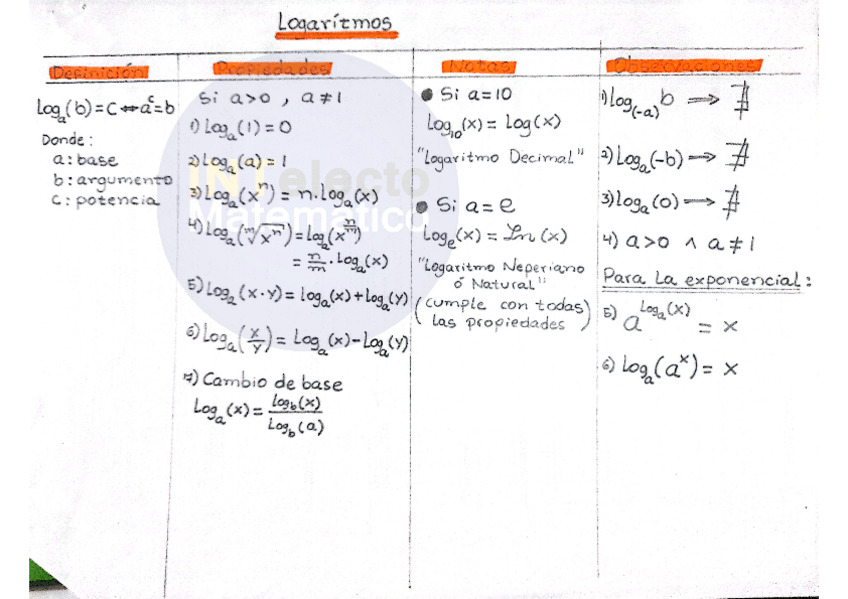 Logarítmos
Definición
Log_a(b) = c ⟺ a^c = b
Donde:
a: base
b: argumento
c: potencia
Propiedades
Si a>0 , a≠1
1) Log_a(1) = 0
2) Log_a(a) = 1
3) Log_a(x^n) = n.log_a(x)
4) Log_a(ᵐ√x^n) = log_a(x^(n/m))
= n/m · Log_a(x)
5) Log_a(x·y) = log_a(x) + log_a(y)
6) Log_a(x/y) = Log_a(x) - Log_a(y)
7) Cambio de base
Log_a(x) = Log_b(x)/Log_b(a)
Notas
● Si a = 10
Log_10(x) = Log(x)
"Logaritmo Decimal"
● Si a = e
Log_e(x) = Ln(x)
"Logaritmo Neperiano
ó Natural"
(cumple con todas
las propiedades)
Observaciones
1) log_(-a) b ⟹ ∄
2) Log_a(-b) ⟹ ∄
3) log_a(0) ⟹ ∄
4) a>0 ∧ a≠1
Para la exponencial:
5) a^(Log_a(x)) = x
6) Log_a(a^x) = x
INTelecto
Matemático